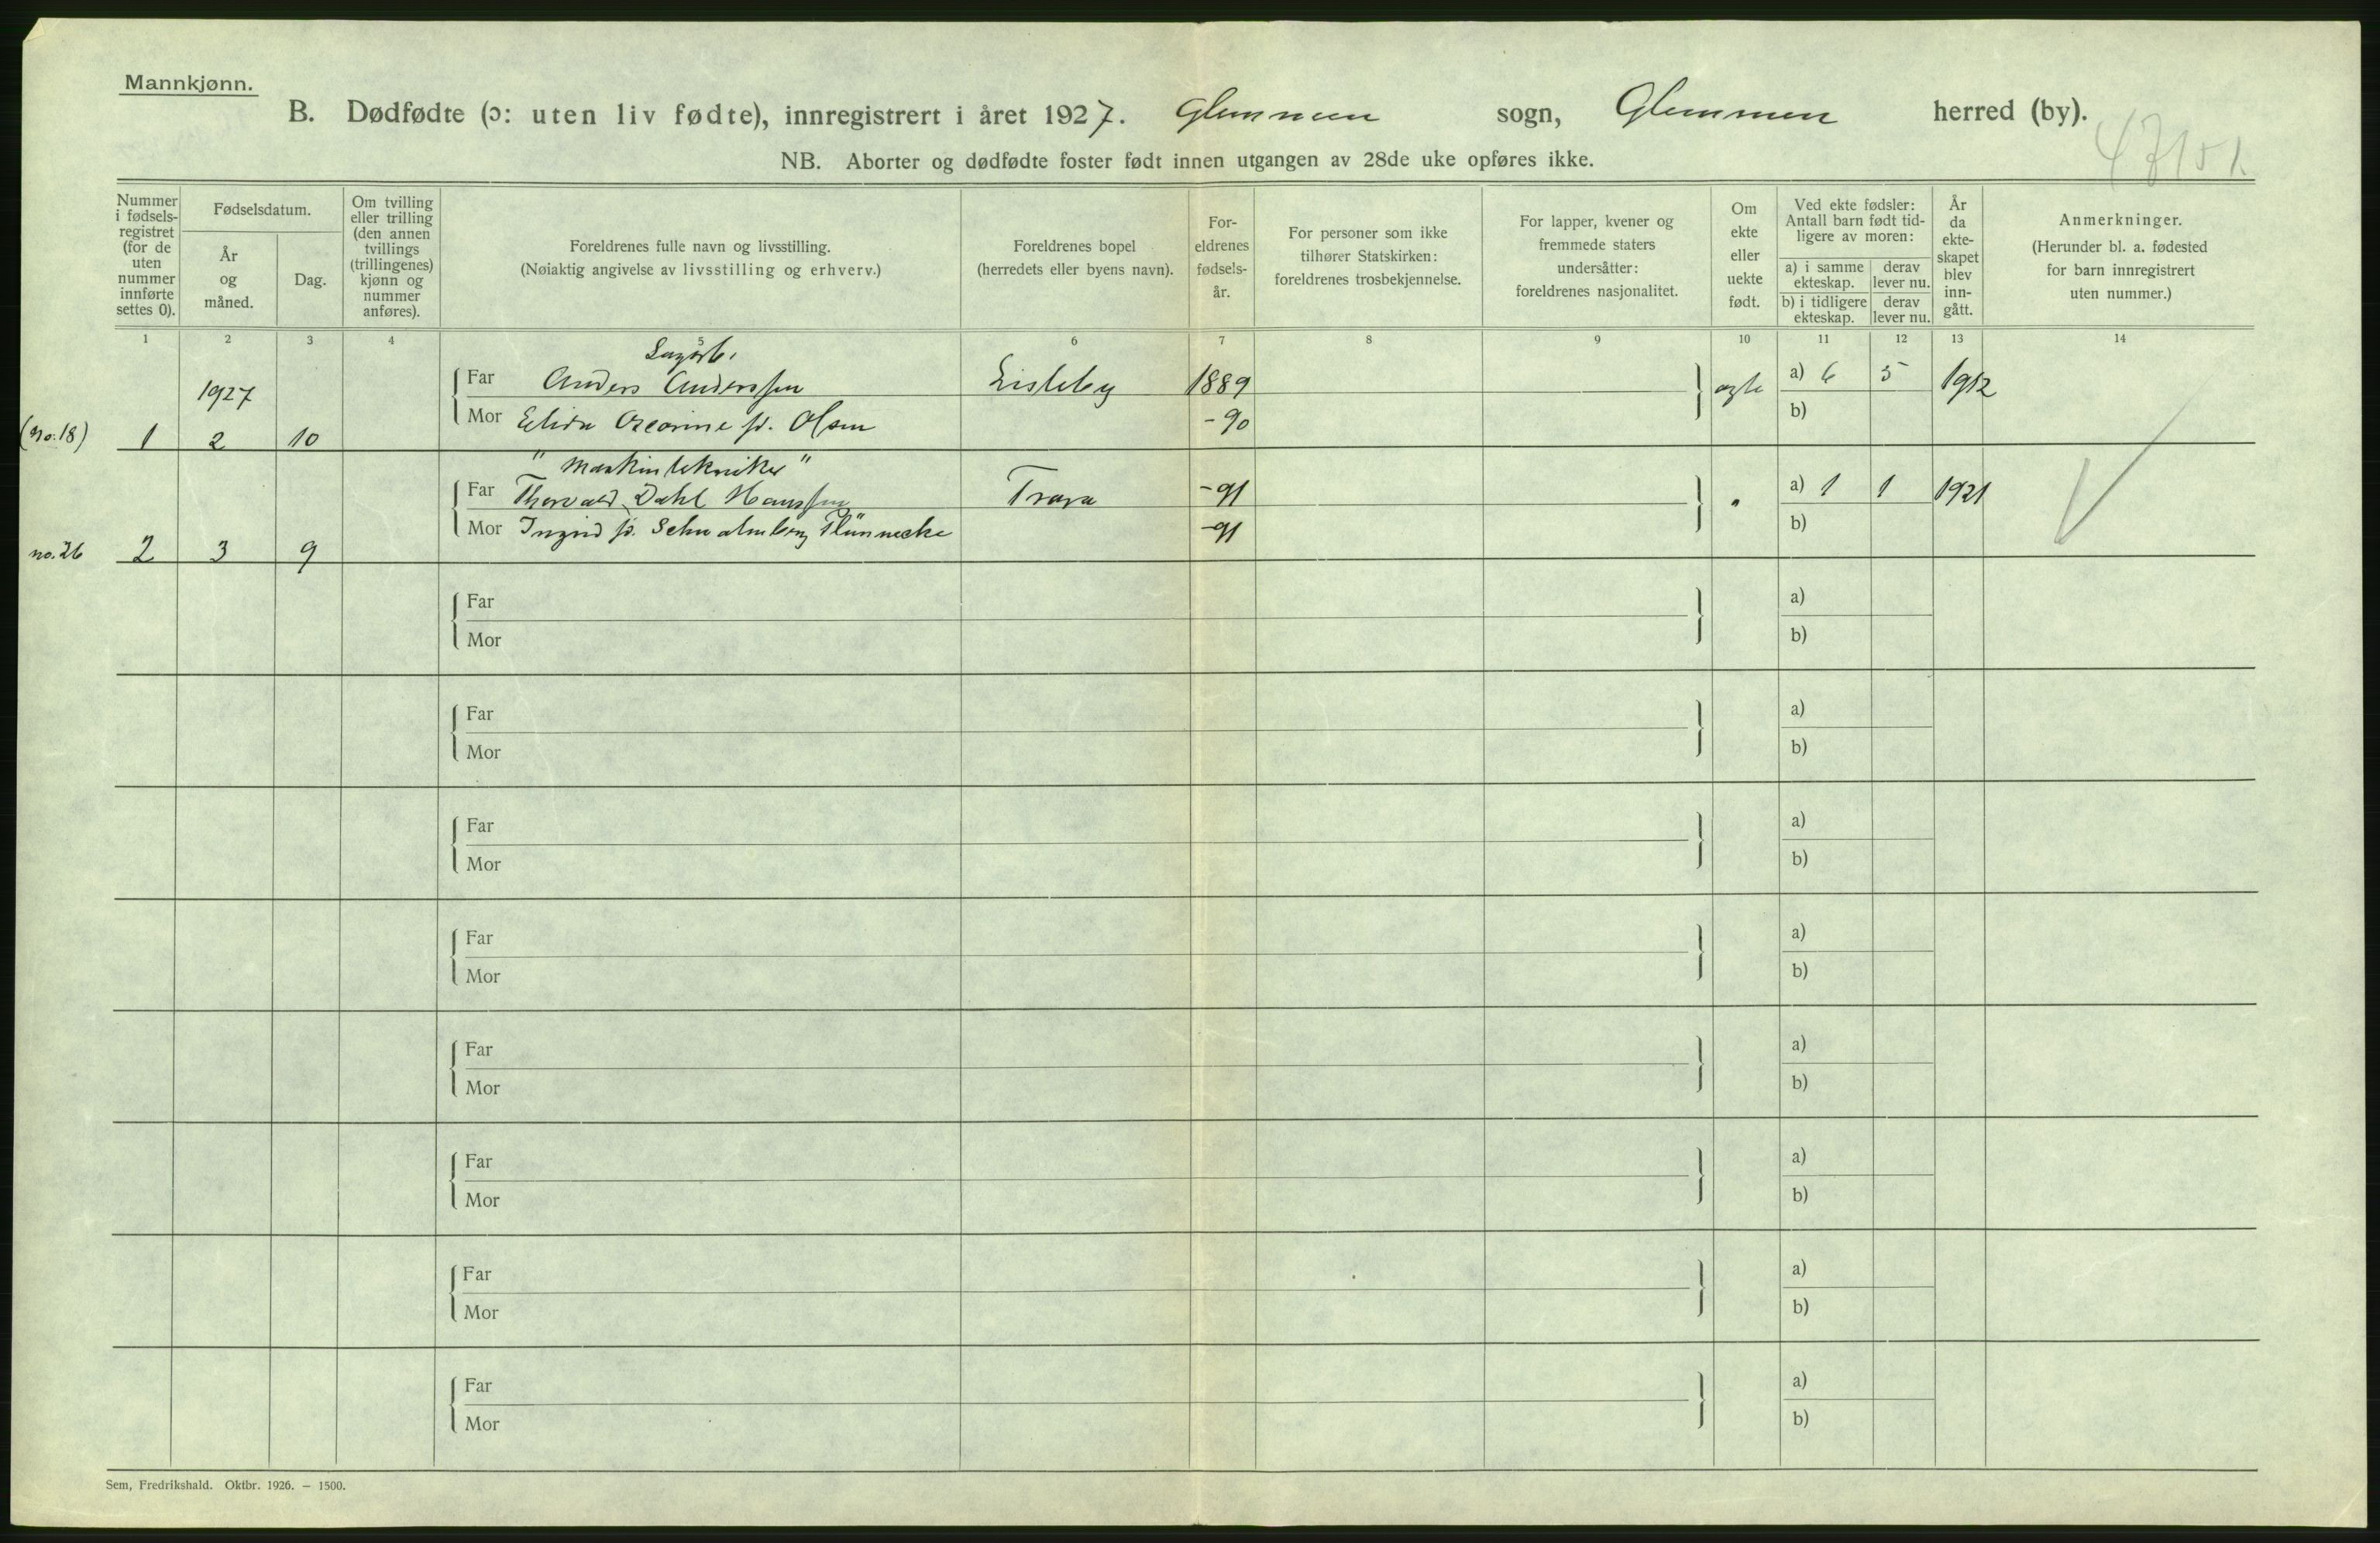 Mannkjønn.
B. Dødfødte (ɔ: uten liv fødte), innregistrert i året 1927. Glemmen sogn, Glemmen herred (by).
NB. Aborter og dødfødte foster født innen utgangen av 28de uke opføres ikke.
Nummer
i fødsels-
registret
(for de
uten
nummer
innførte
settes 0).
Fødselsdatum.
År
og
måned.
Dag.
Om tvilling
eller trilling
(den annen
tvillings
(trillingenes)
kjønn og
nummer
anføres).
Foreldrenes fulle navn og livsstilling.
(Nøiaktig angivelse av livsstilling og erhverv.)
Foreldrenes bopel
(herredets eller byens navn).
For-
eldrenes
fødsels-
år.
For personer som ikke
tilhører Statskirken:
foreldrenes trosbekjennelse.
For lapper, kvener og
fremmede staters
undersåtter:
foreldrenes nasjonalitet.
Om
ekte
eller
uekte
født.
Ved ekte fødsler:
Antall barn født tid-
ligere av moren:
a) i samme
ekteskap.
derav
lever nu.
b) i tidligere
ekteskap.
derav
lever nu.
År
da
ekte-
skapet
blev
inn-
gått.
Anmerkninger.
(Herunder bl. a. fødested
for barn innregistrert
uten nummer.)
1 2 3 4 5 6 7 8 9 10 11 12 13 14
Sagarb.
1927 Far Anders Anderssen Lisleby 1889 ægte a) 6 5 1912
(no. 18) 1 2 10 Mor Elida f. Olsen -90 b)
" Maskintekniker "
Far Thorvald Dahl Hanssen Trara -91 " a) 1 1 1921
no. 26 2 3 9 Mor Ingrid f. Plünnecke -91 b)
Far a)
Mor b)
Far a)
Mor b)
Far a)
Mor b)
Far a)
Mor b)
Far a)
Mor b)
Far a)
Mor b)
Far a)
Mor b)
Far a)
Mor b)
Sem, Fredrikshald. Oktbr. 1926. – 1500.